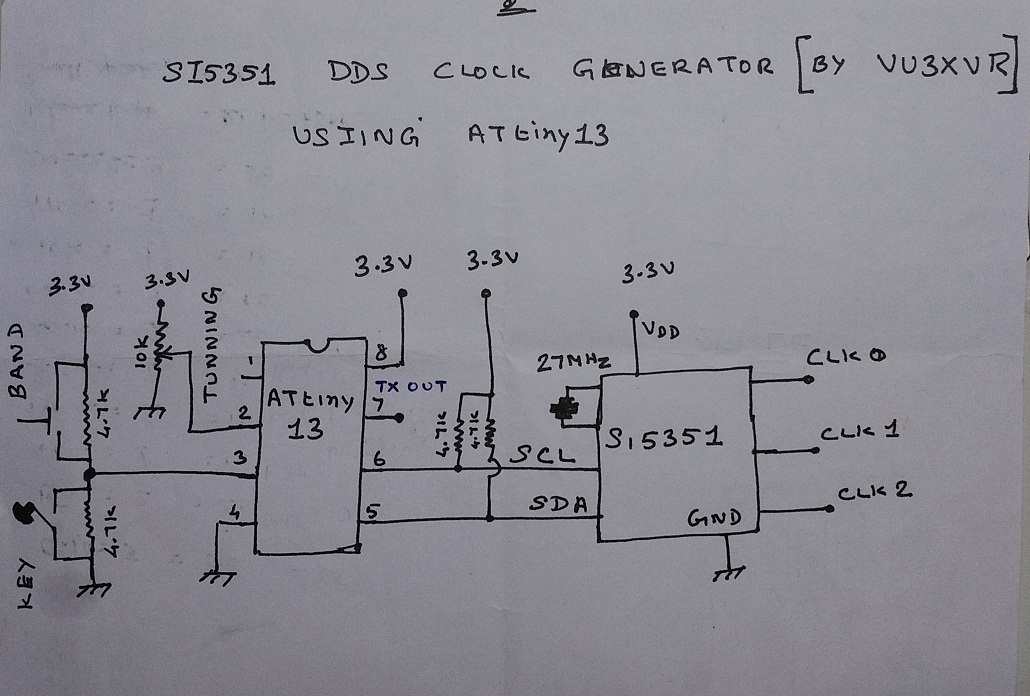 2
SI5351 DDS CLOCK GENERATOR [BY VU3XVR]
USIING ATtiny13
3.3V
3.3V
3.3V
3.3V
3.3V
BAND
4.7K
10K
TUNNING
1
2
3
4
ATtiny
13
8
TX OUT
7
6
5
4.7K
4.7K
SCL
SDA
27MHz
VDD
Si5351
GND
CLK 0
CLK 1
CLK 2
KEY
4.7K